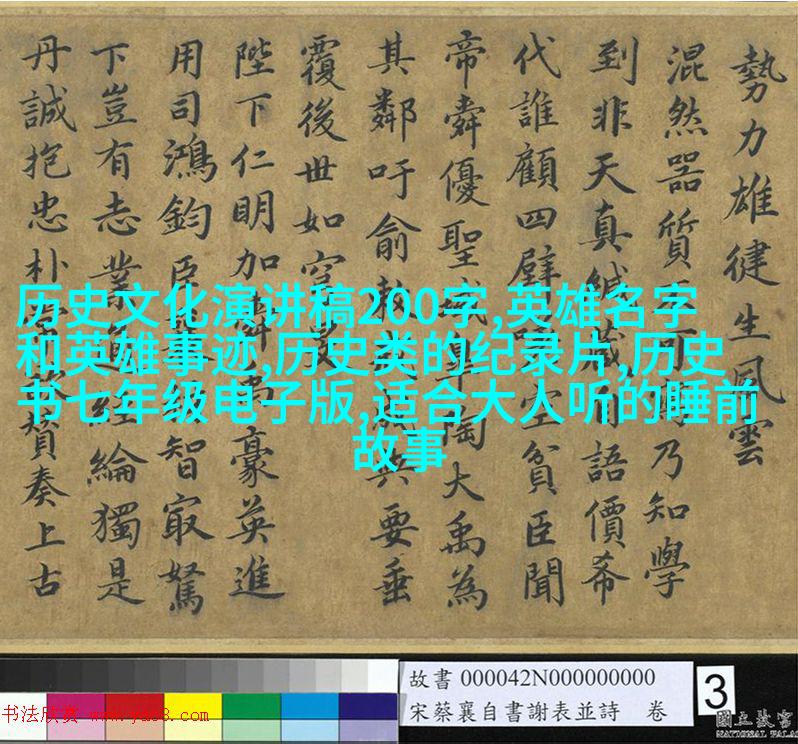 勢力雄徤生風雲
混然器質可乃知學
到非天真緘藏百語價希
代誰顧四壁空貧臣聞
帝舜優聖域皐陶大禹為
其鄰吁俞敕戒成典要垂
覆後世如穹
陛下仁明加舜禹豪英進
用司鴻鈞臣智㝡駑
下豈有志業經綸獨是
丹誠抱忠朴常贊奏上古
历史文化演讲稿200字,英雄名字
和英雄事迹,历史类的纪录片,历史
书七年级电子版,适合大人听的睡前
故事
故書 000042N000000000
宋蔡襄自書謝表並詩 卷
3
國立故宮
NATIONAL PALA
书法欣赏